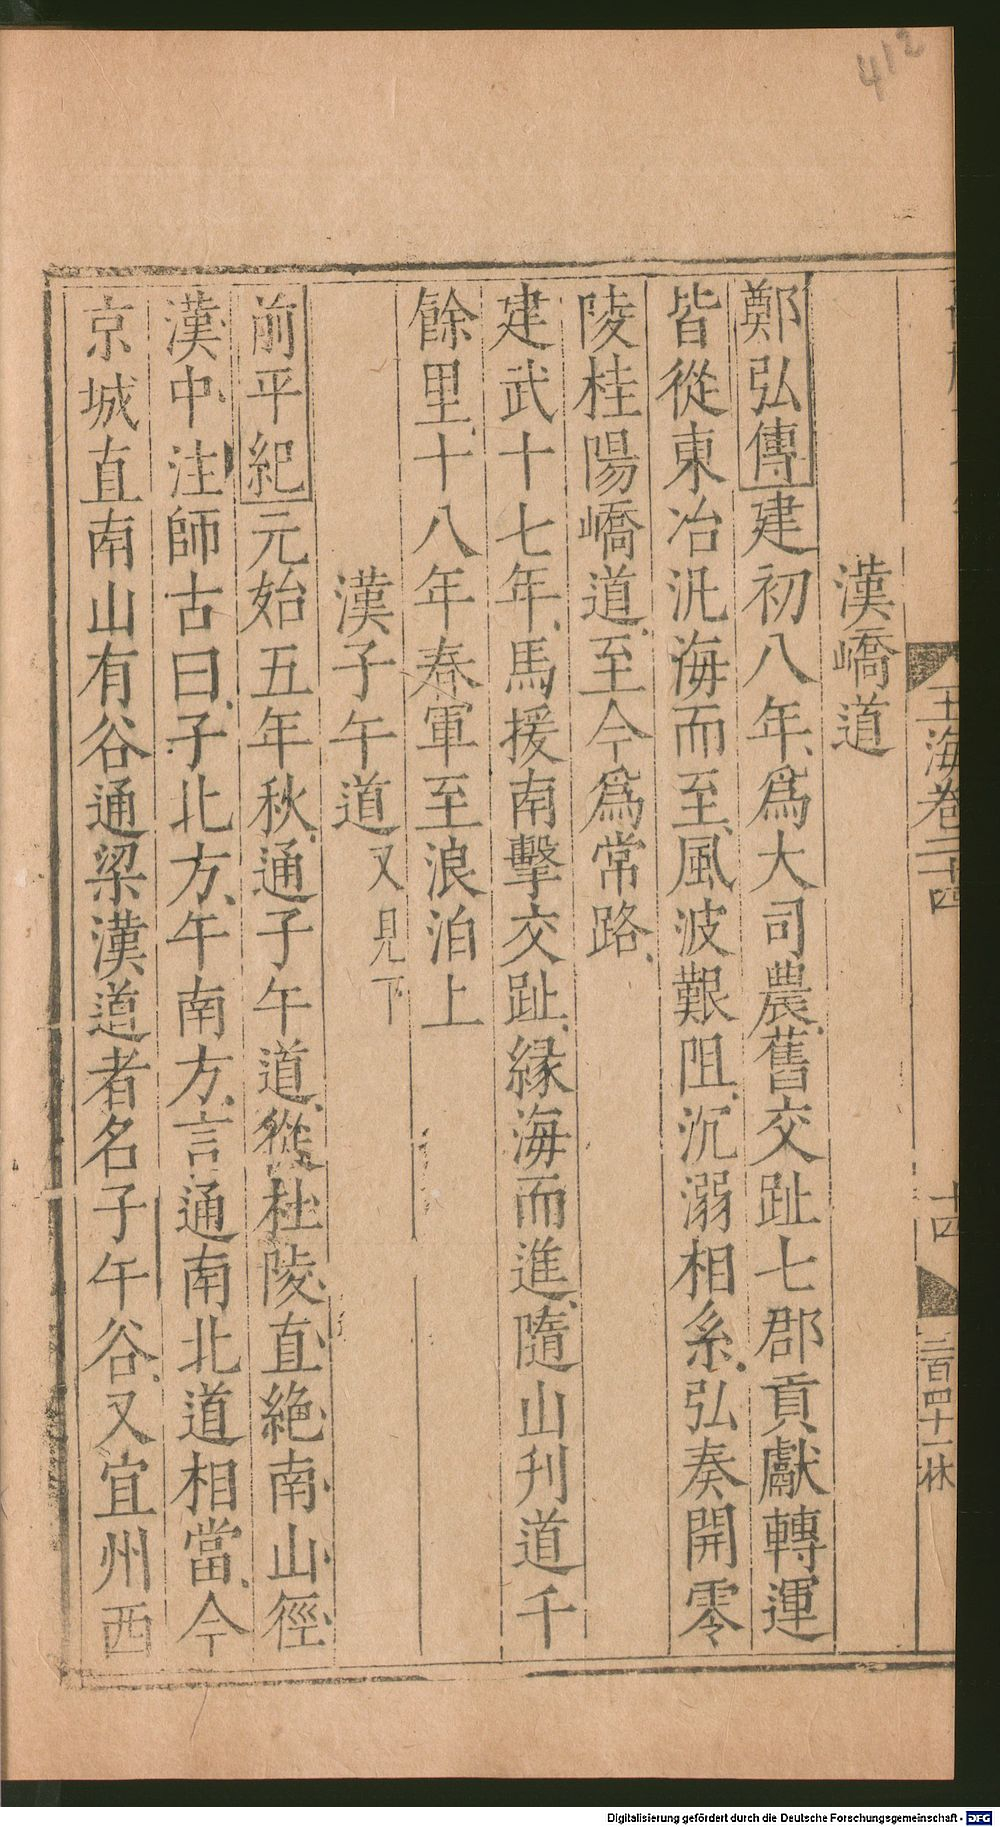 412
玉海卷二十四
十四
三百四十一
漢嶠道
鄭弘傳建初八年爲大司農舊交趾七郡貢獻轉運
皆從東冶汎海而至風波艱阻沉溺相系弘奏開零
陵桂陽嶠道至今爲常路
建武十七年馬援南擊交趾縁海而進隨山刊道千
餘里十八年春軍至浪泊上
漢子午道又見下
前平紀元始五年秋通子午道從杜陵直絶南山徑
漢中注師古曰子北方午南方言通南北道相當今
京城直南山有谷通梁漢道者名子午谷又宜州西
Digitalisierung gefördert durch die Deutsche Forschungsgemeinschaft - DFG